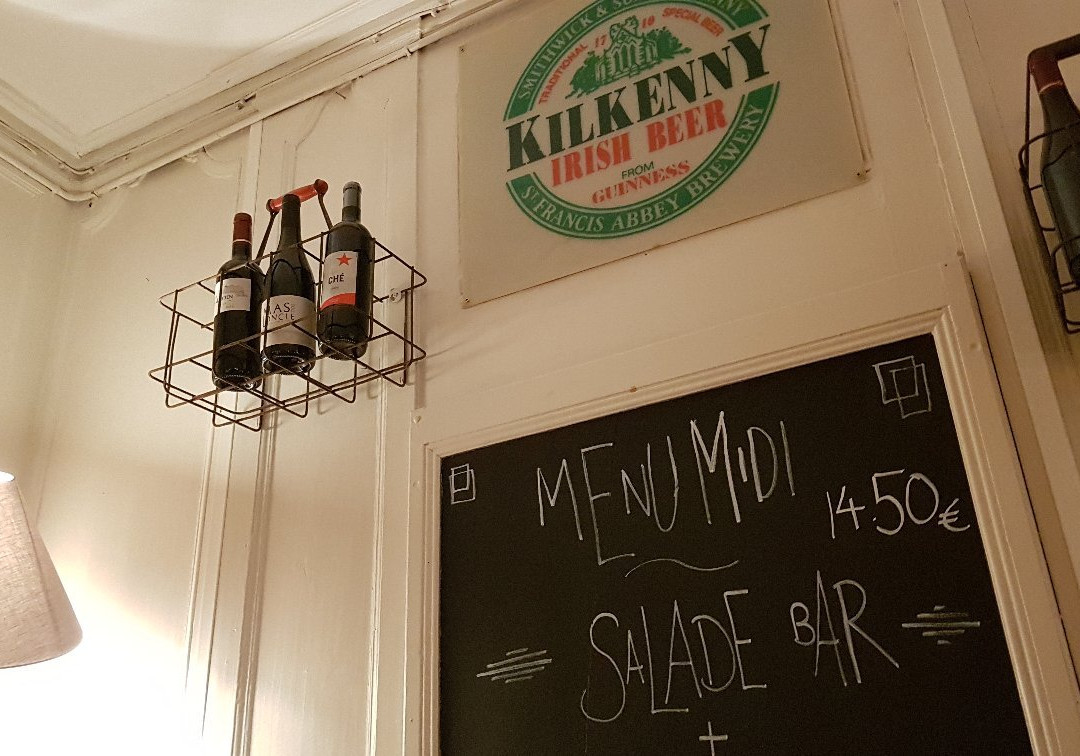 SMITHWICK & SO
TRADITIONAL 17 10 SPECIAL BEER
KILKENNY
IRISH BEER
FROM
GUINNESS
ST FRANCIS ABBEY BREWERY
MAS
ONCLE
CHÉ
MENU MIDI
14.50€
SALADE BAR
+